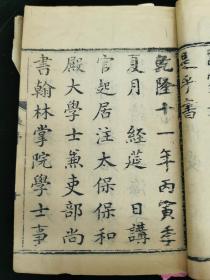 乾隆十一年丙寅季
夏月　經筵　日講
官起居注太保保和
殿大學士兼吏部尚
書翰林掌院學士事